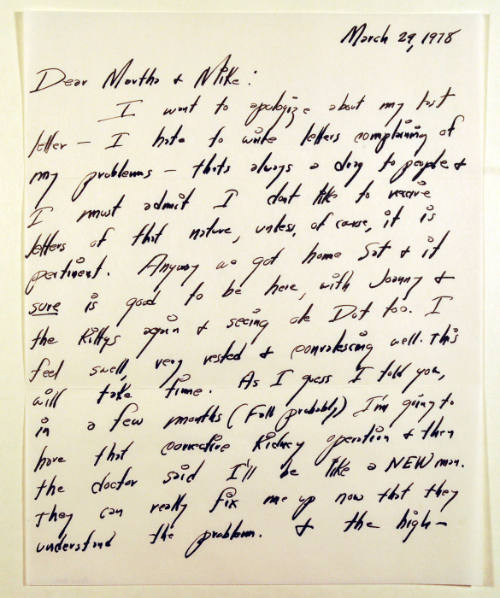 March 29, 1978
Dear Martha & Mike:
I want to apologize about my last
letter — I hate to write letters complaining of
my problems — thats always a drag to people &
I must admit I dont like to receive
letters of that nature, unless, of course, it is
pertinent. Anyway we got home Sat & it
sure is good to be here, with Joanny &
the Kittys again & seeing ole Dot too. I
feel swell, very rested & convalescing well. This
will take time. As I guess I told you,
in a few months (Fall probably) I'm going to
have that corrective Kidney operation & then
the doctor said I'll be like a NEW man.
They can really fix me up now that they
understand the problem. & the high-